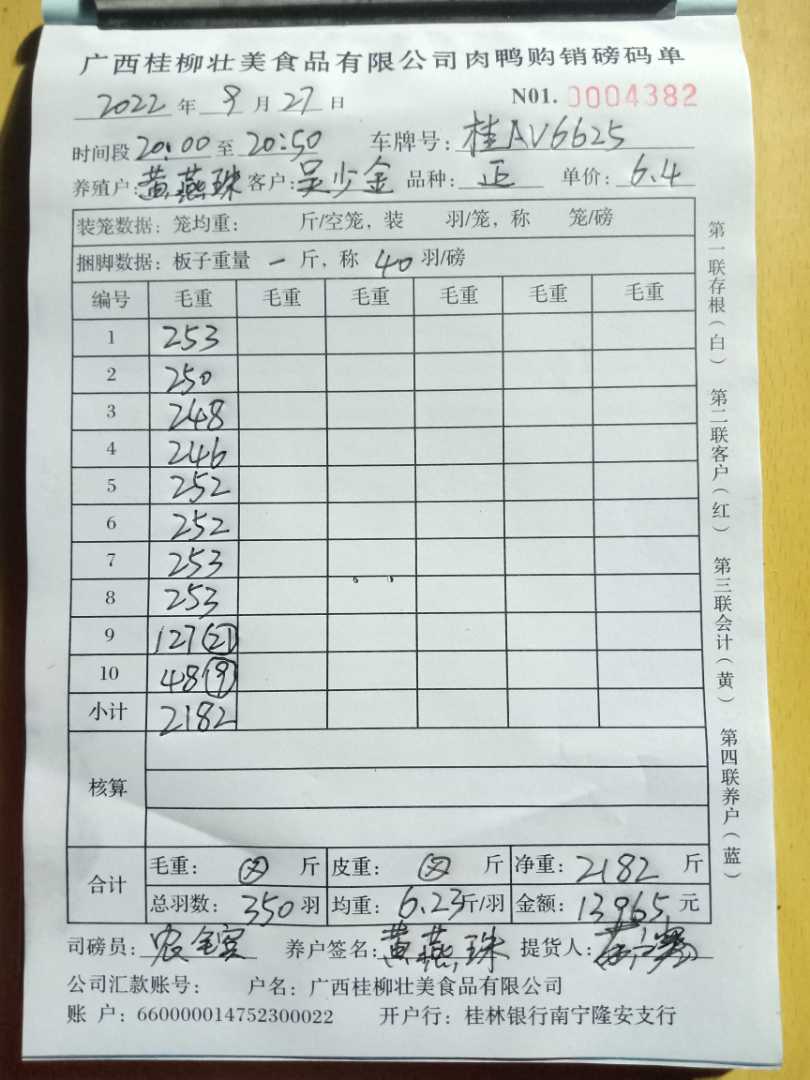 广西桂柳壮美食品有限公司肉鸭购销磅码单
2022 年 9 月 27 日 N01. 0004382
时间段 20:00 至 20:50 车牌号: 桂AV6625
养殖户: 黄燕珠 客户: 吴少金 品种: 正 单价: 6.4
装笼数据: 笼均重: 斤/空笼, 装 羽/笼, 称 笼/磅
捆脚数据: 板子重量 一 斤, 称 40 羽/磅
编号 毛重 毛重 毛重 毛重 毛重 毛重
1 253
2 250
3 248
4 246
5 252
6 252
7 253
8 253
9 127 (21)
10 48 (9)
小计 2182
核算
合计 毛重: 斤 皮重: 斤 净重: 2182 斤
总羽数: 350 羽 均重: 6.23 斤/羽 金额: 13965 元
司磅员: 养户签名: 黄燕珠 提货人:
公司汇款账号: 户名: 广西桂柳壮美食品有限公司
账 户: 660000014752300022 开户行: 桂林银行南宁隆安支行
第一联存根(白) 第二联客户(红) 第三联会计(黄) 第四联养户(蓝)